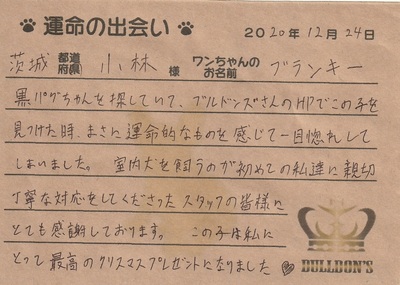 運命の出会い
2020年12月24日
茨城 都道府県 小林 様 ワンちゃんのお名前 ブランキー
黒パグちゃんを探していて、ブルドンズさんのHPでこの子を
見つけた時、まさに運命的なものを感じて一目惚れして
しまいました。 室内犬を飼うのが初めての私達に親切
丁寧な対応をしてくださったスタッフの皆様に
とても感謝しております。 この子は私に
とって最高のクリスマスプレゼントになりました♡
BULLDON'S